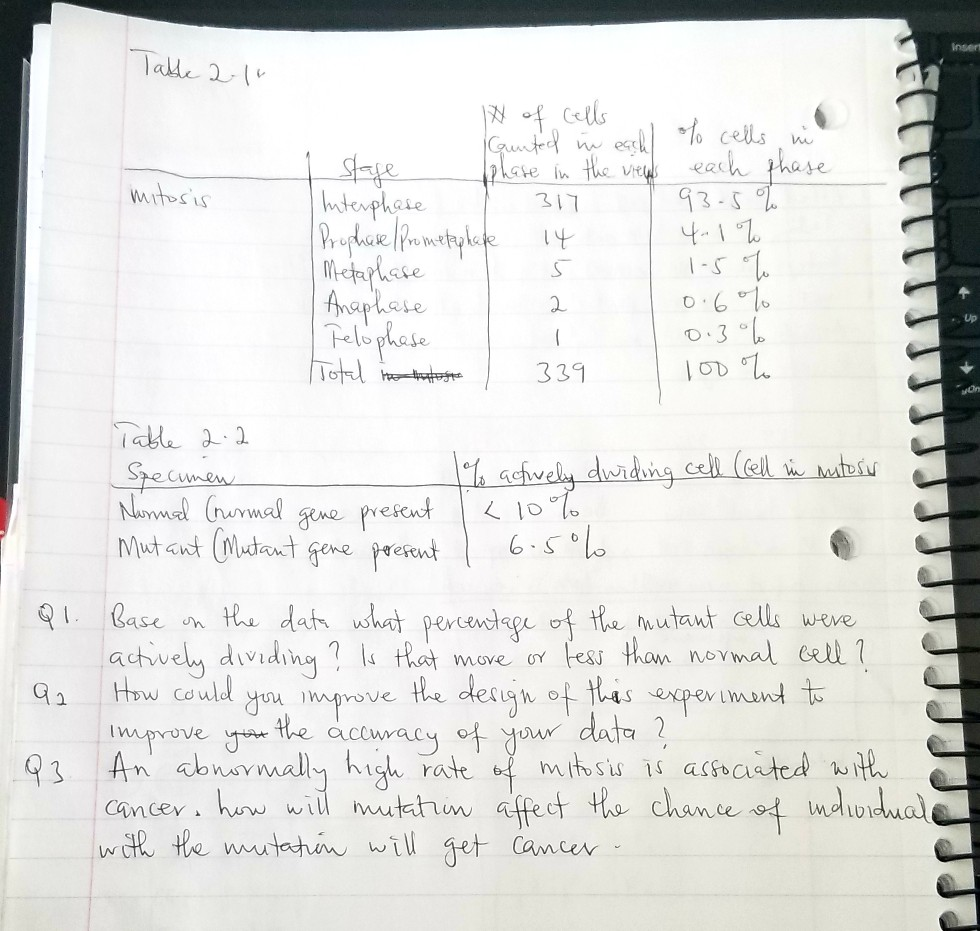 Table 2.1
# of cells
Counted in each % cells in
Stage phase in the views each phase
mitosis Interphase 317 93.5 %
Prophase/Prometaphase 14 4.1 %
Metaphase 5 1.5 %
Anaphase 2 0.6 %
Telophase 1 0.3 %
Total 339 100 %
Table 2.2
Specimen % actively dividing cell (Cell in mitosis
Normal (normal gene present < 10 %
Mutant (Mutant gene present 6.5 %
Q1. Base on the data what percentage of the mutant cells were
actively dividing? Is that more or less than normal cell?
Q2 How could you improve the design of this experiment to
improve you the accuracy of your data?
Q3 An abnormally high rate of mitosis is associated with
cancer. how will mutation affect the chance of individual
with the mutation will get cancer.
Insert
Up